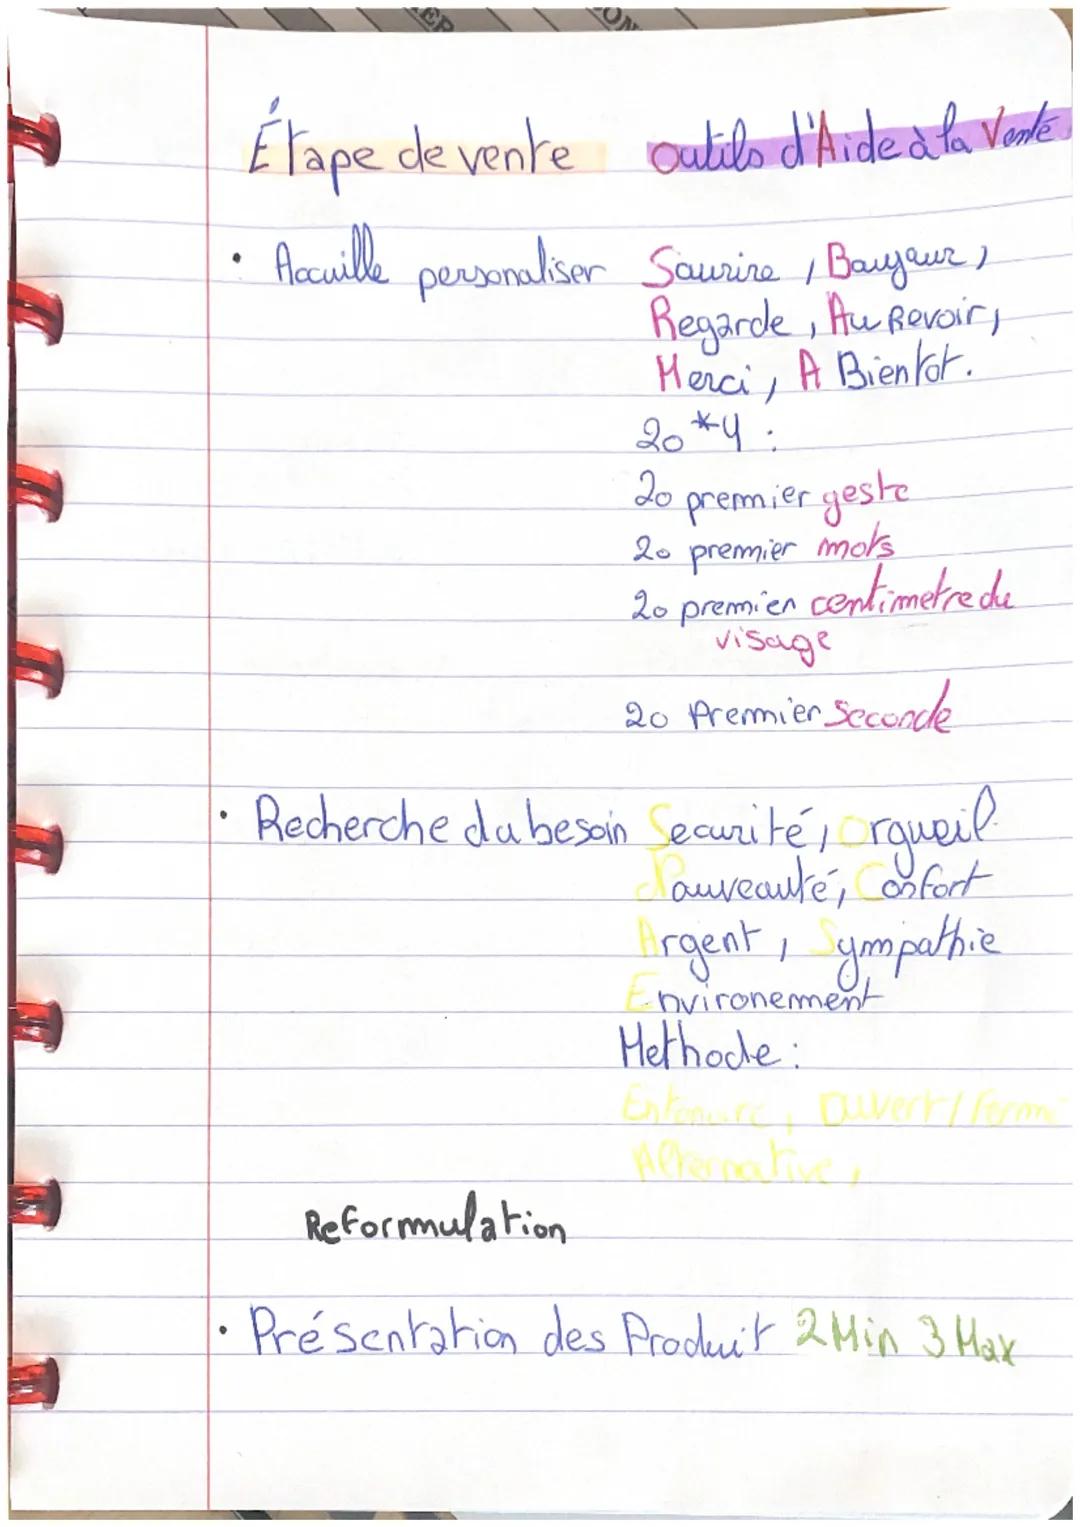 Étape de vente Outils d'Aide à la Vente
• Accuille personaliser Sourire, Bonjour,
Regarde, Au Revoir,
Merci, A Bientot.
20*4 :
20 premmier geste
20 premmier mots
20 premmier centimetre du
visage
20 Premmier Seconde
• Recherche du besoin Securité, Orgueil
Nouveauté, Confort
Argent, Sympathie
Environement
Methode :
Entonure, Ouvert/Fermé
Alternative,
Reformulation
• Présentation des Produit 2 Min 3 Max